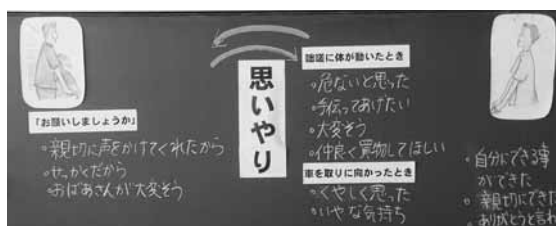 「お願いしましょうか」
・親切に声をかけてくれたから
・せっかくだから
・おばあさんが大変そう
思いやり
咄嗟に体が動いたとき
・危ないと思った
・手伝ってあげたい
・大変そう
・仲良く買物してほしい
車を取りに向かったとき
・くやしく思った
・いやな気持ち
・自分にできる事
ができた
・親切にできた
・ありがとうと言わ